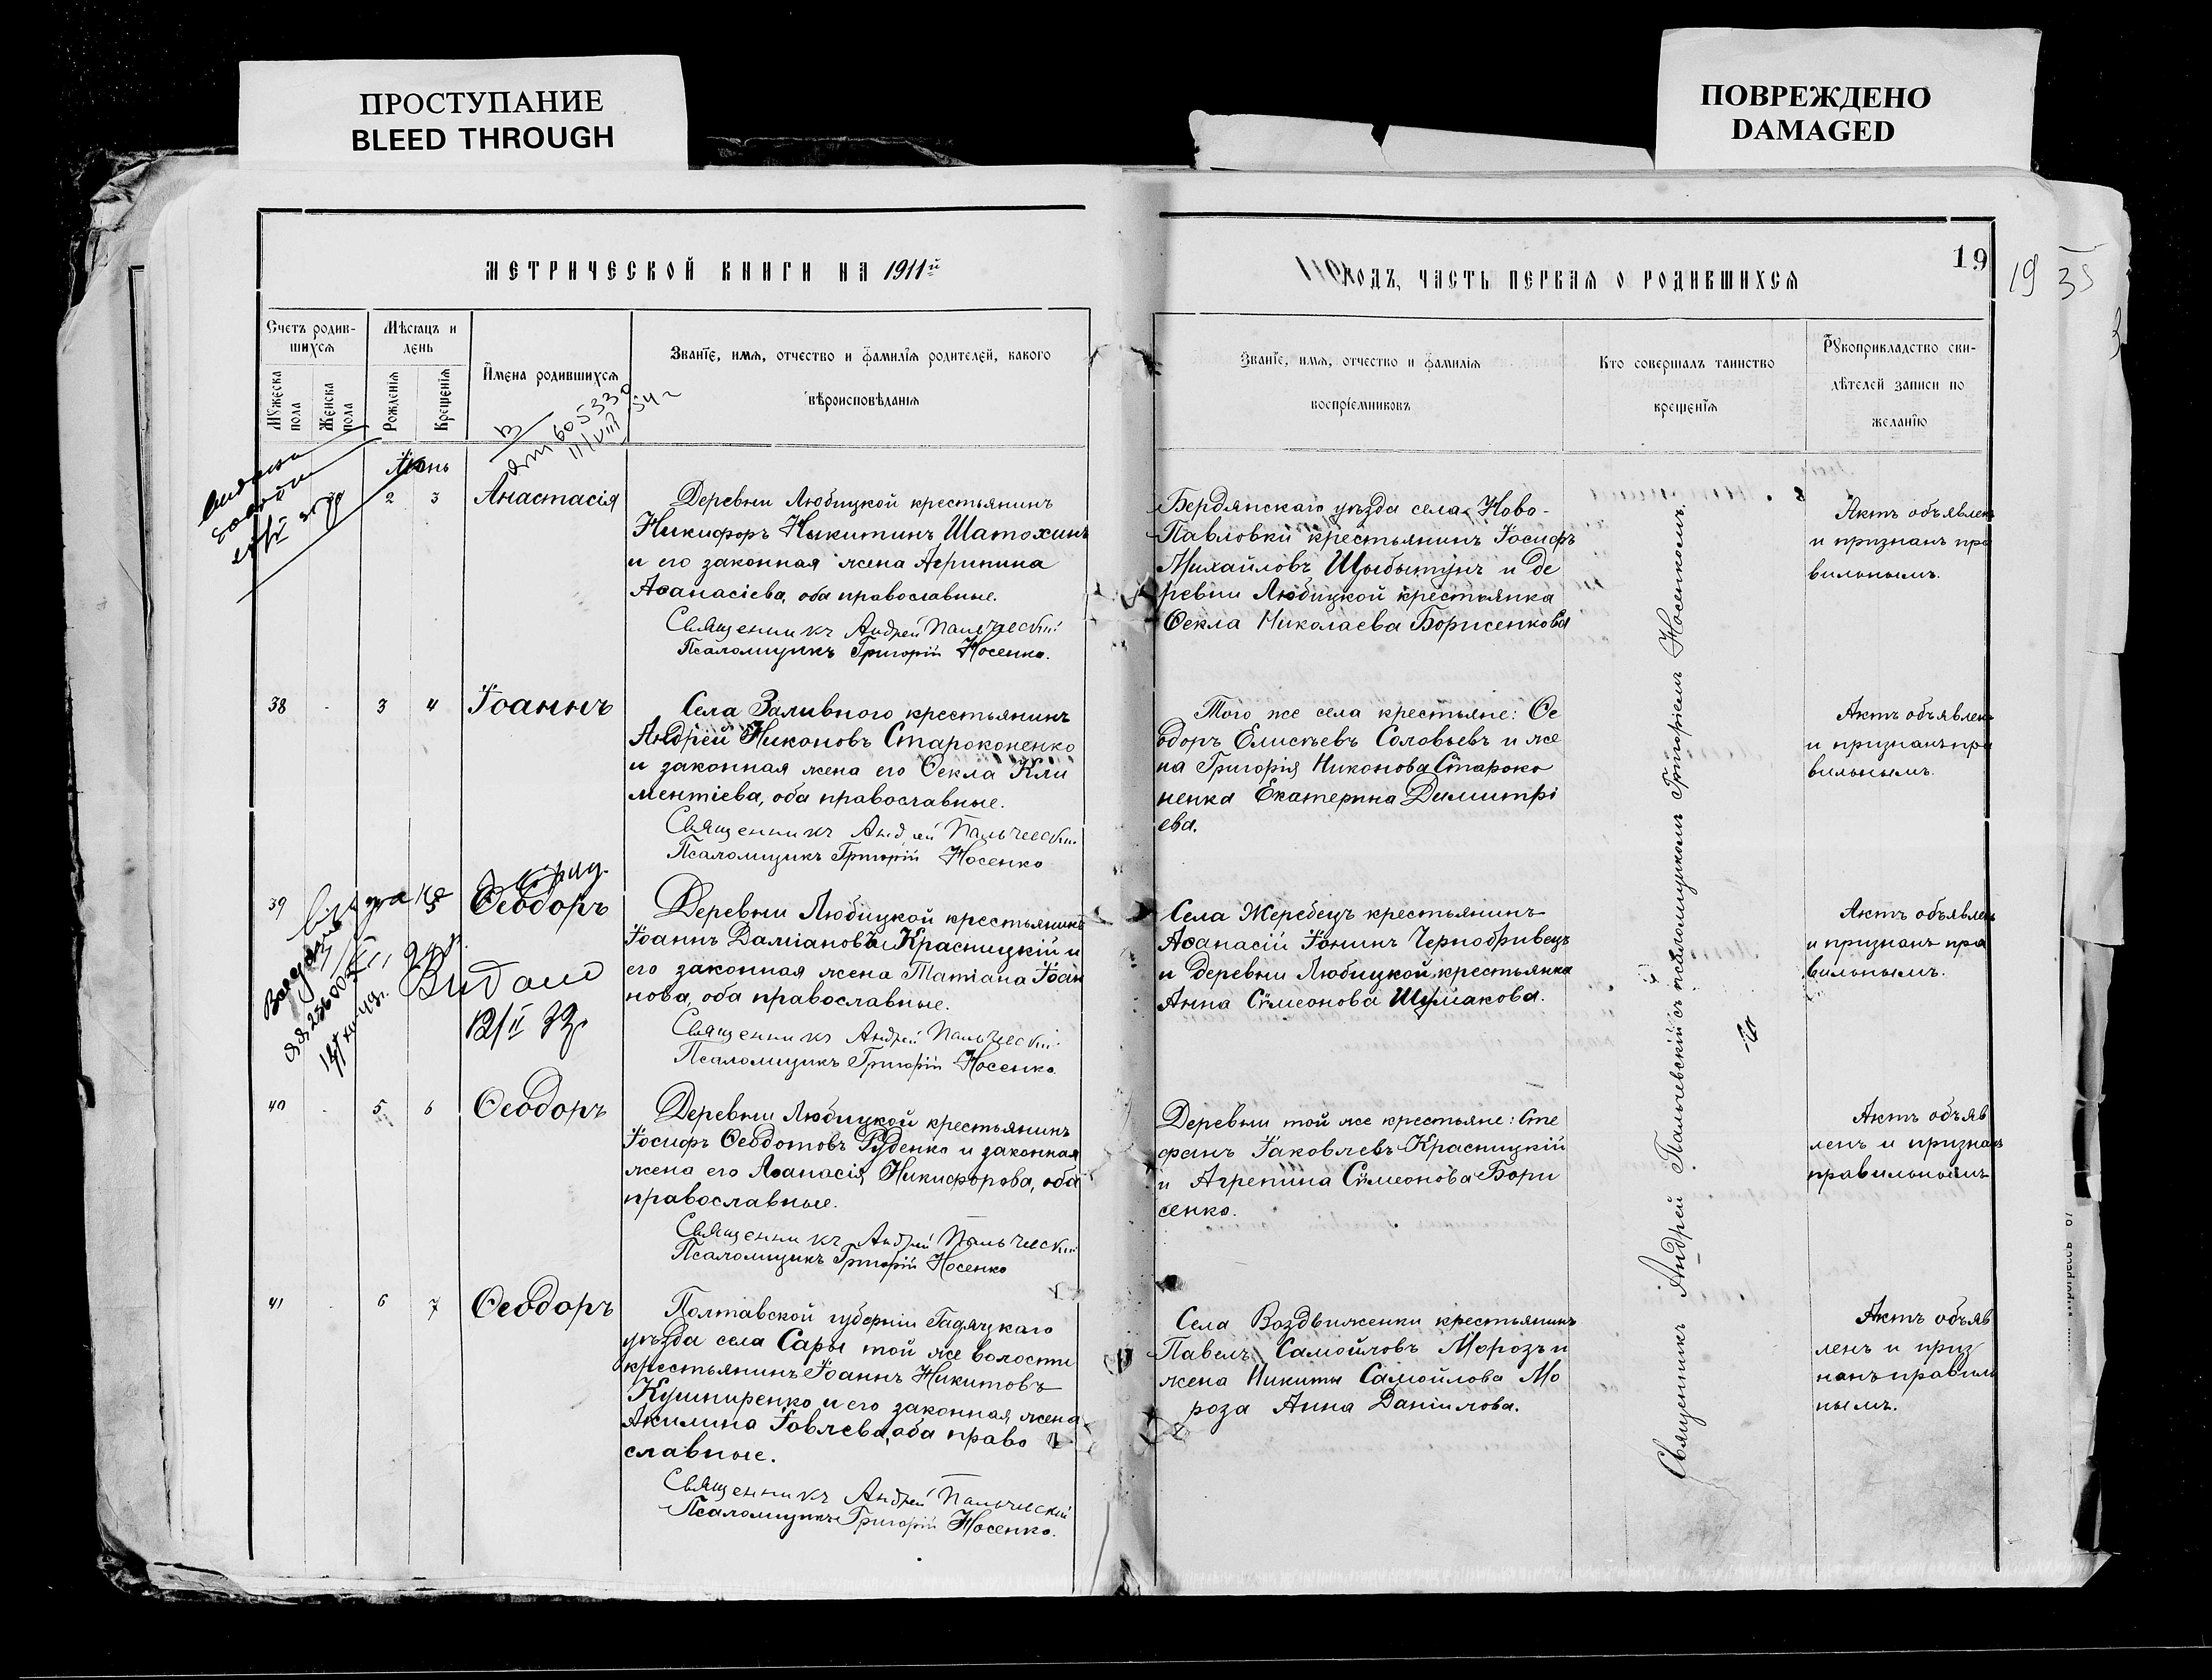 ПРОСТУПАНИЕ
BLEED THROUGH
ПОВРЕЖДЕНО
DAMAGED
МЕТРИЧЕСКОЙ КНИГИ НА 1911й
Счетъ родив-
шихся
Мѣсяцъ и
день
Мужеска
пола
Женска
пола
Рожденія
Крещенія
Имена родившихся
Званіе, имя, отчество и фамилія родителей, какого
вѣроисповѣданія
Іюнь
2 3 Анастасія
Деревни Любицкой крестьянинъ
Никифоръ Никитинъ Шатохинъ
и его законная жена Агрипина
Аѳанасіева, оба православные.
Священникъ Андрей Пальчевскій
Псаломщикъ Григорій Носенко.
38 - 3 4 Іоаннъ
Села Заливного крестьянинъ
Андрей Никоновъ Староконенко
и законная жена его Ѳекла Кли
ментіева, оба православные.
Священникъ Андрей Пальчевскій
Псаломщикъ Григорій Носенко
39 Ѳеодоръ
Деревни Любицкой крестьянинъ
Іоаннъ Даміановъ Красницкій и
его законная жена Татіана Іоан
нова, оба православные.
Священникъ Андрей Пальчевскій
Псаломщикъ Григорій Носенко.
12/II 32
40 - 5 6 Ѳеодоръ
Деревни Любицкой крестьянинъ
Іосифъ Ѳеодотовъ Руденко и законная
жена его Аѳанасія Никифорова, оба
православные.
Священникъ Андрей Пальчевскій
Псаломщикъ Григорій Носенко
41 - 6 7 Ѳеодоръ
Полтавской губерніи Гадячскаго
уѣзда села Сары той же волости
крестьянинъ Іоаннъ Никитовъ
Кушниренко и его законная жена
Акилина Іовлева, оба право
славные.
Священникъ Андрей Пальчевскій
Псаломщикъ Григорій Носенко.
ГОДЪ, ЧАСТЬ ПЕРВАЯ О РОДИВШИХСЯ
19
19 35
Званіе, имя, отчество и фамилія
воспріемниковъ
Кто совершалъ таинство
крещенія
Рукоприкладство сви-
дѣтелей записи по
желанію
Бердянскаго уѣзда села Ново-
Павловки крестьянинъ Іосифъ
Михайловъ Щыбытунъ и де
ревни Любицкой крестьянка
Ѳекла Николаева Борисенкова
Актъ объявленъ
и признанъ пра
вильнымъ.
Того же села крестьяне: Ѳе
одоръ Елисѣевъ Соловьевъ и же
на Григорія Никонова Староко
ненка Екатерина Димитрі
ева.
Актъ объявленъ
и признанъ пра
вильнымъ.
Села Жеребецъ крестьянинъ
Аѳанасій Іонинъ Чернобривецъ
и деревни Любицкой крестьянка
Анна Сѵмеонова Шумакова.
Актъ объявленъ
и признанъ пра
вильнымъ.
Деревни той же крестьяне: Сте
фанъ Іаковлевъ Красницкій
и Агрепина Сѵмеонова Бори
сенко.
Актъ объяв
ленъ и признанъ
правильнымъ
Села Воздвиженки крестьянинъ
Павелъ Самойловъ Морозъ и
жена Никиты Самойлова Мо
роза Анна Даніилова.
Актъ объяв
ленъ и приз
нанъ правиль
нымъ.
Священникъ Андрей Пальчевскій съ псаломщикомъ Григоріемъ Носенкомъ.